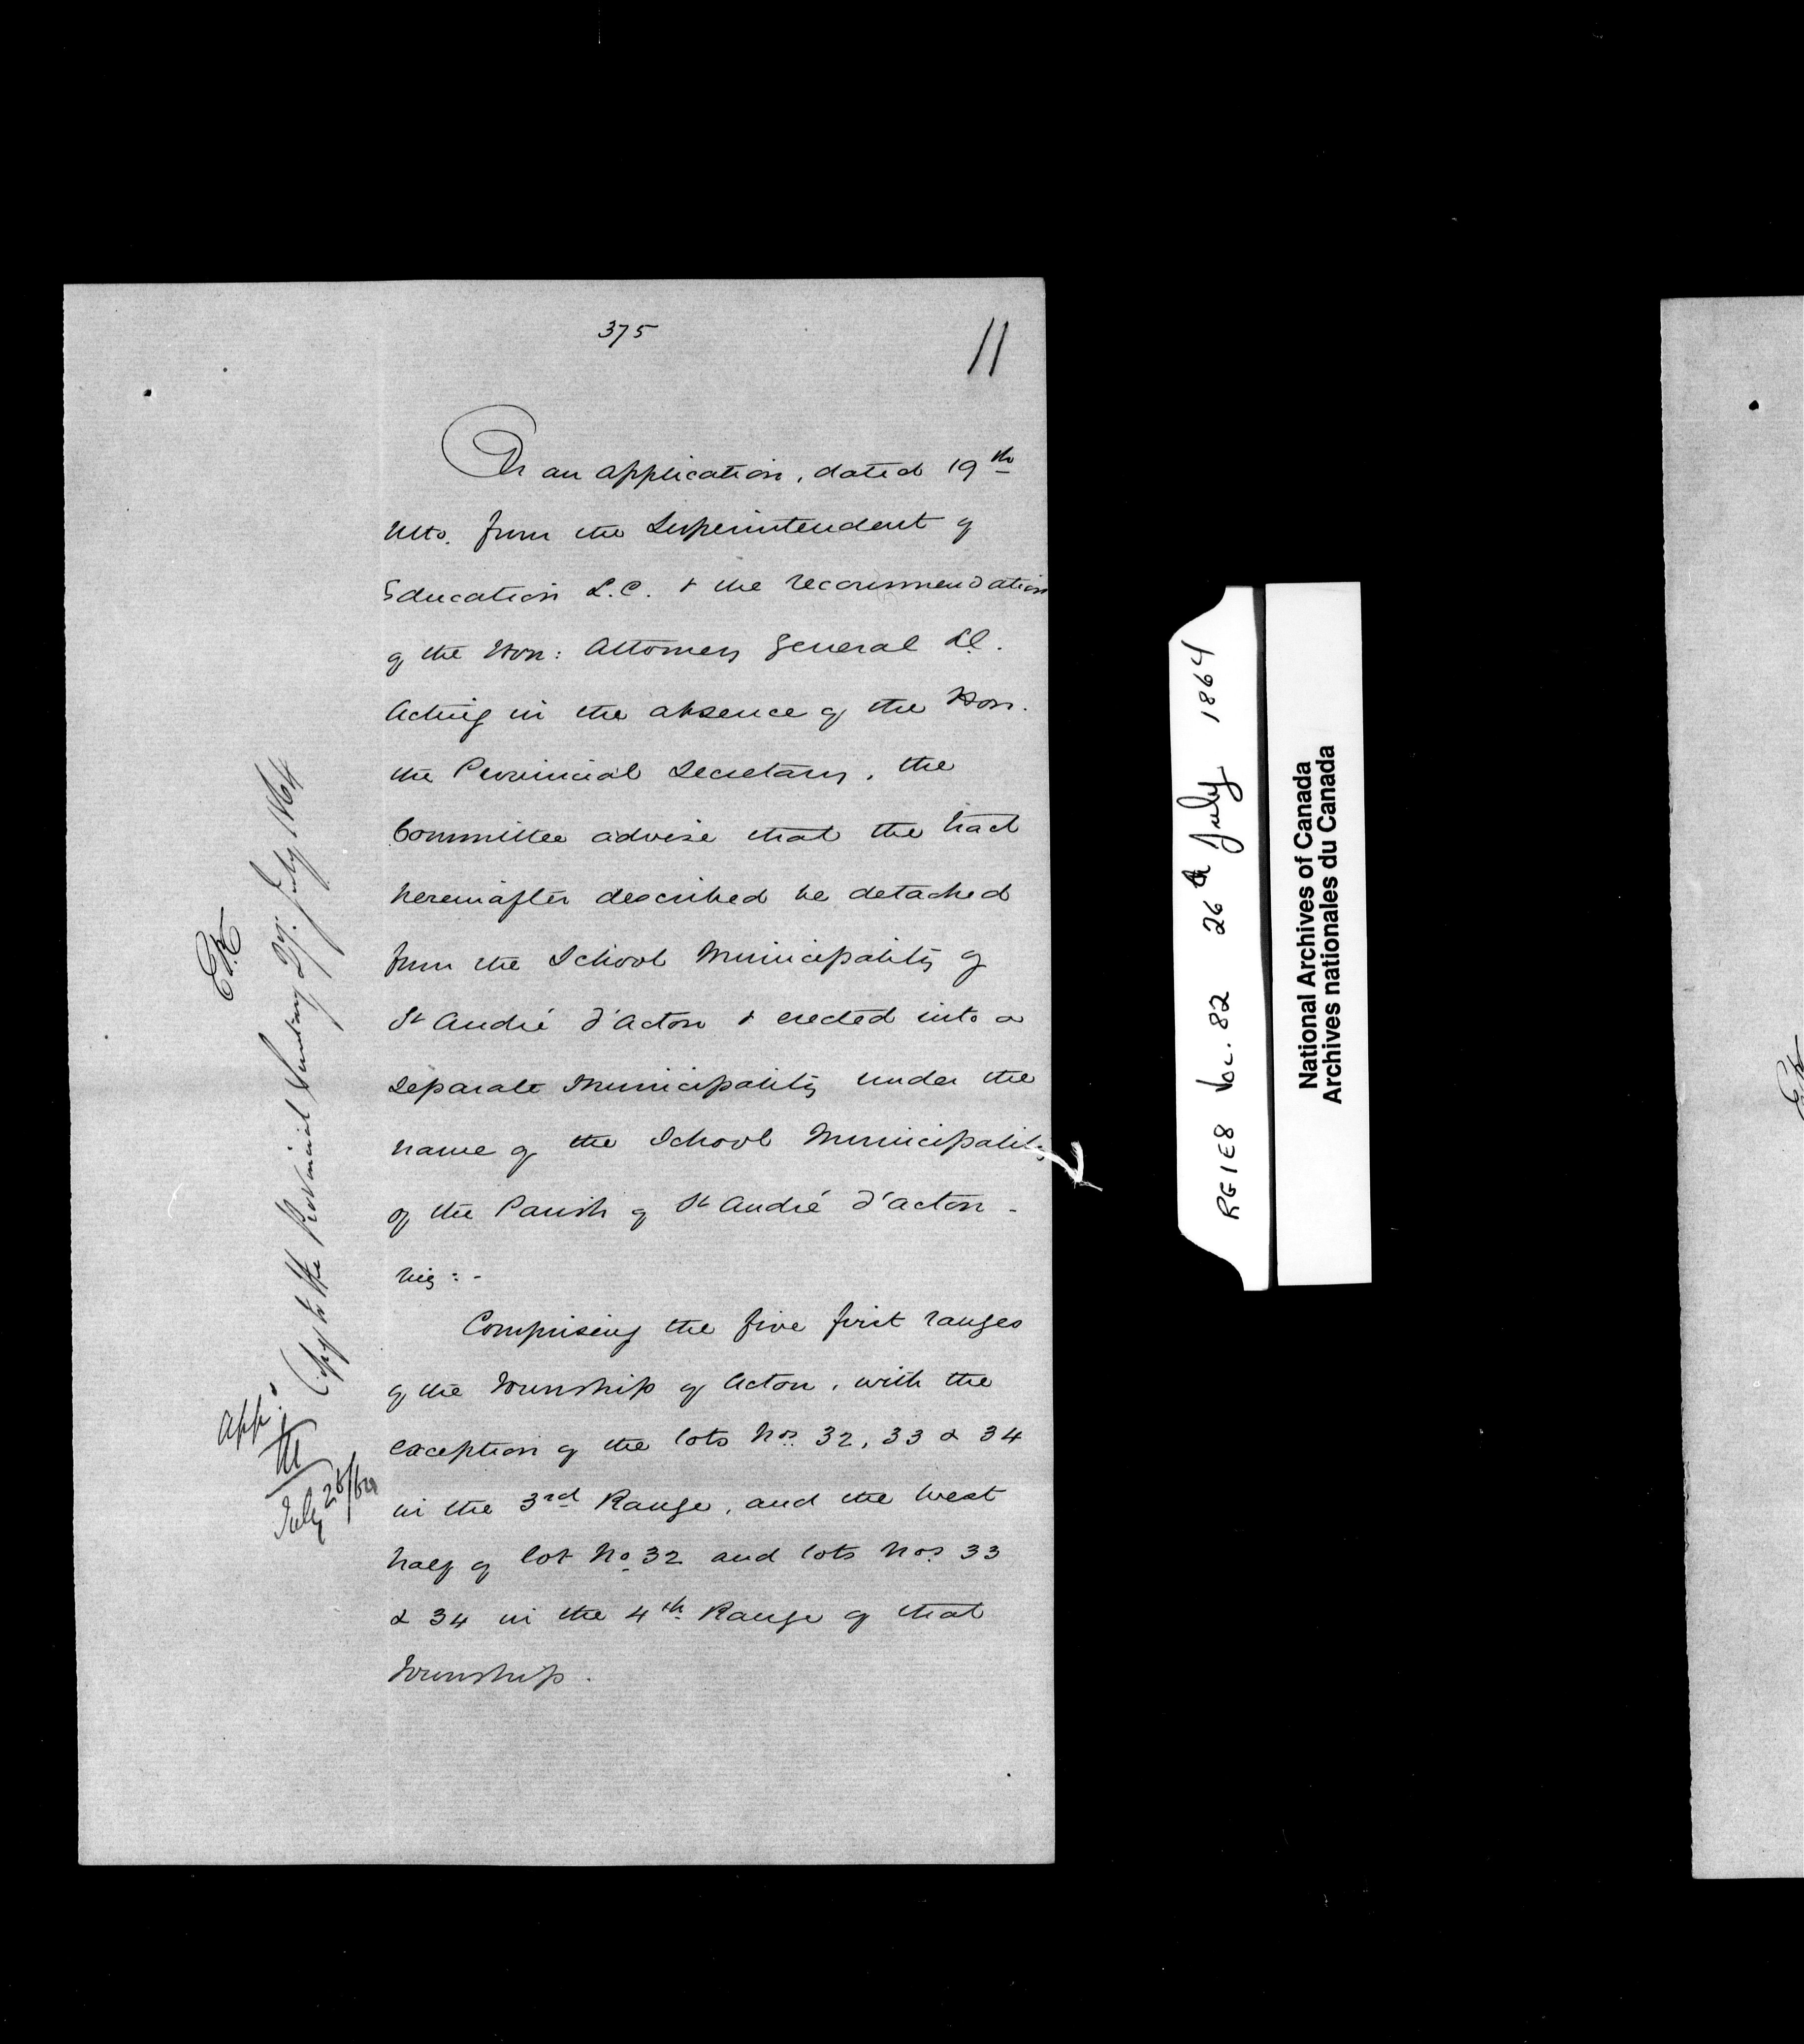 375
11
On an application, dated 19th
Ulto. from the Superintendent of
Education L.C. & the recommendation
of the Hon: Attorney General L.C.
Acting in the absence of the Hon.
the Provincial Secretary, the
Committee advise that the tract
hereinafter described be detached
from the School Municipality of
St André d'Acton & erected into a
separate Municipality under the
name of the School Municipality
of the Parish of St André d'Acton -
viz: -
Comprising the five first ranges
of the Township of Acton, with the
exception of the lots Nos. 32, 33 & 34
in the 3rd Range, and the West
half of lot No. 32 and lots Nos. 33
& 34 in the 4th Range of that
Township.
Copy to the Provincial Secretary 27. July 1864
App.
July /64
RG1E8 Vol. 82 26th July 1864
National Archives of Canada
Archives nationales du Canada